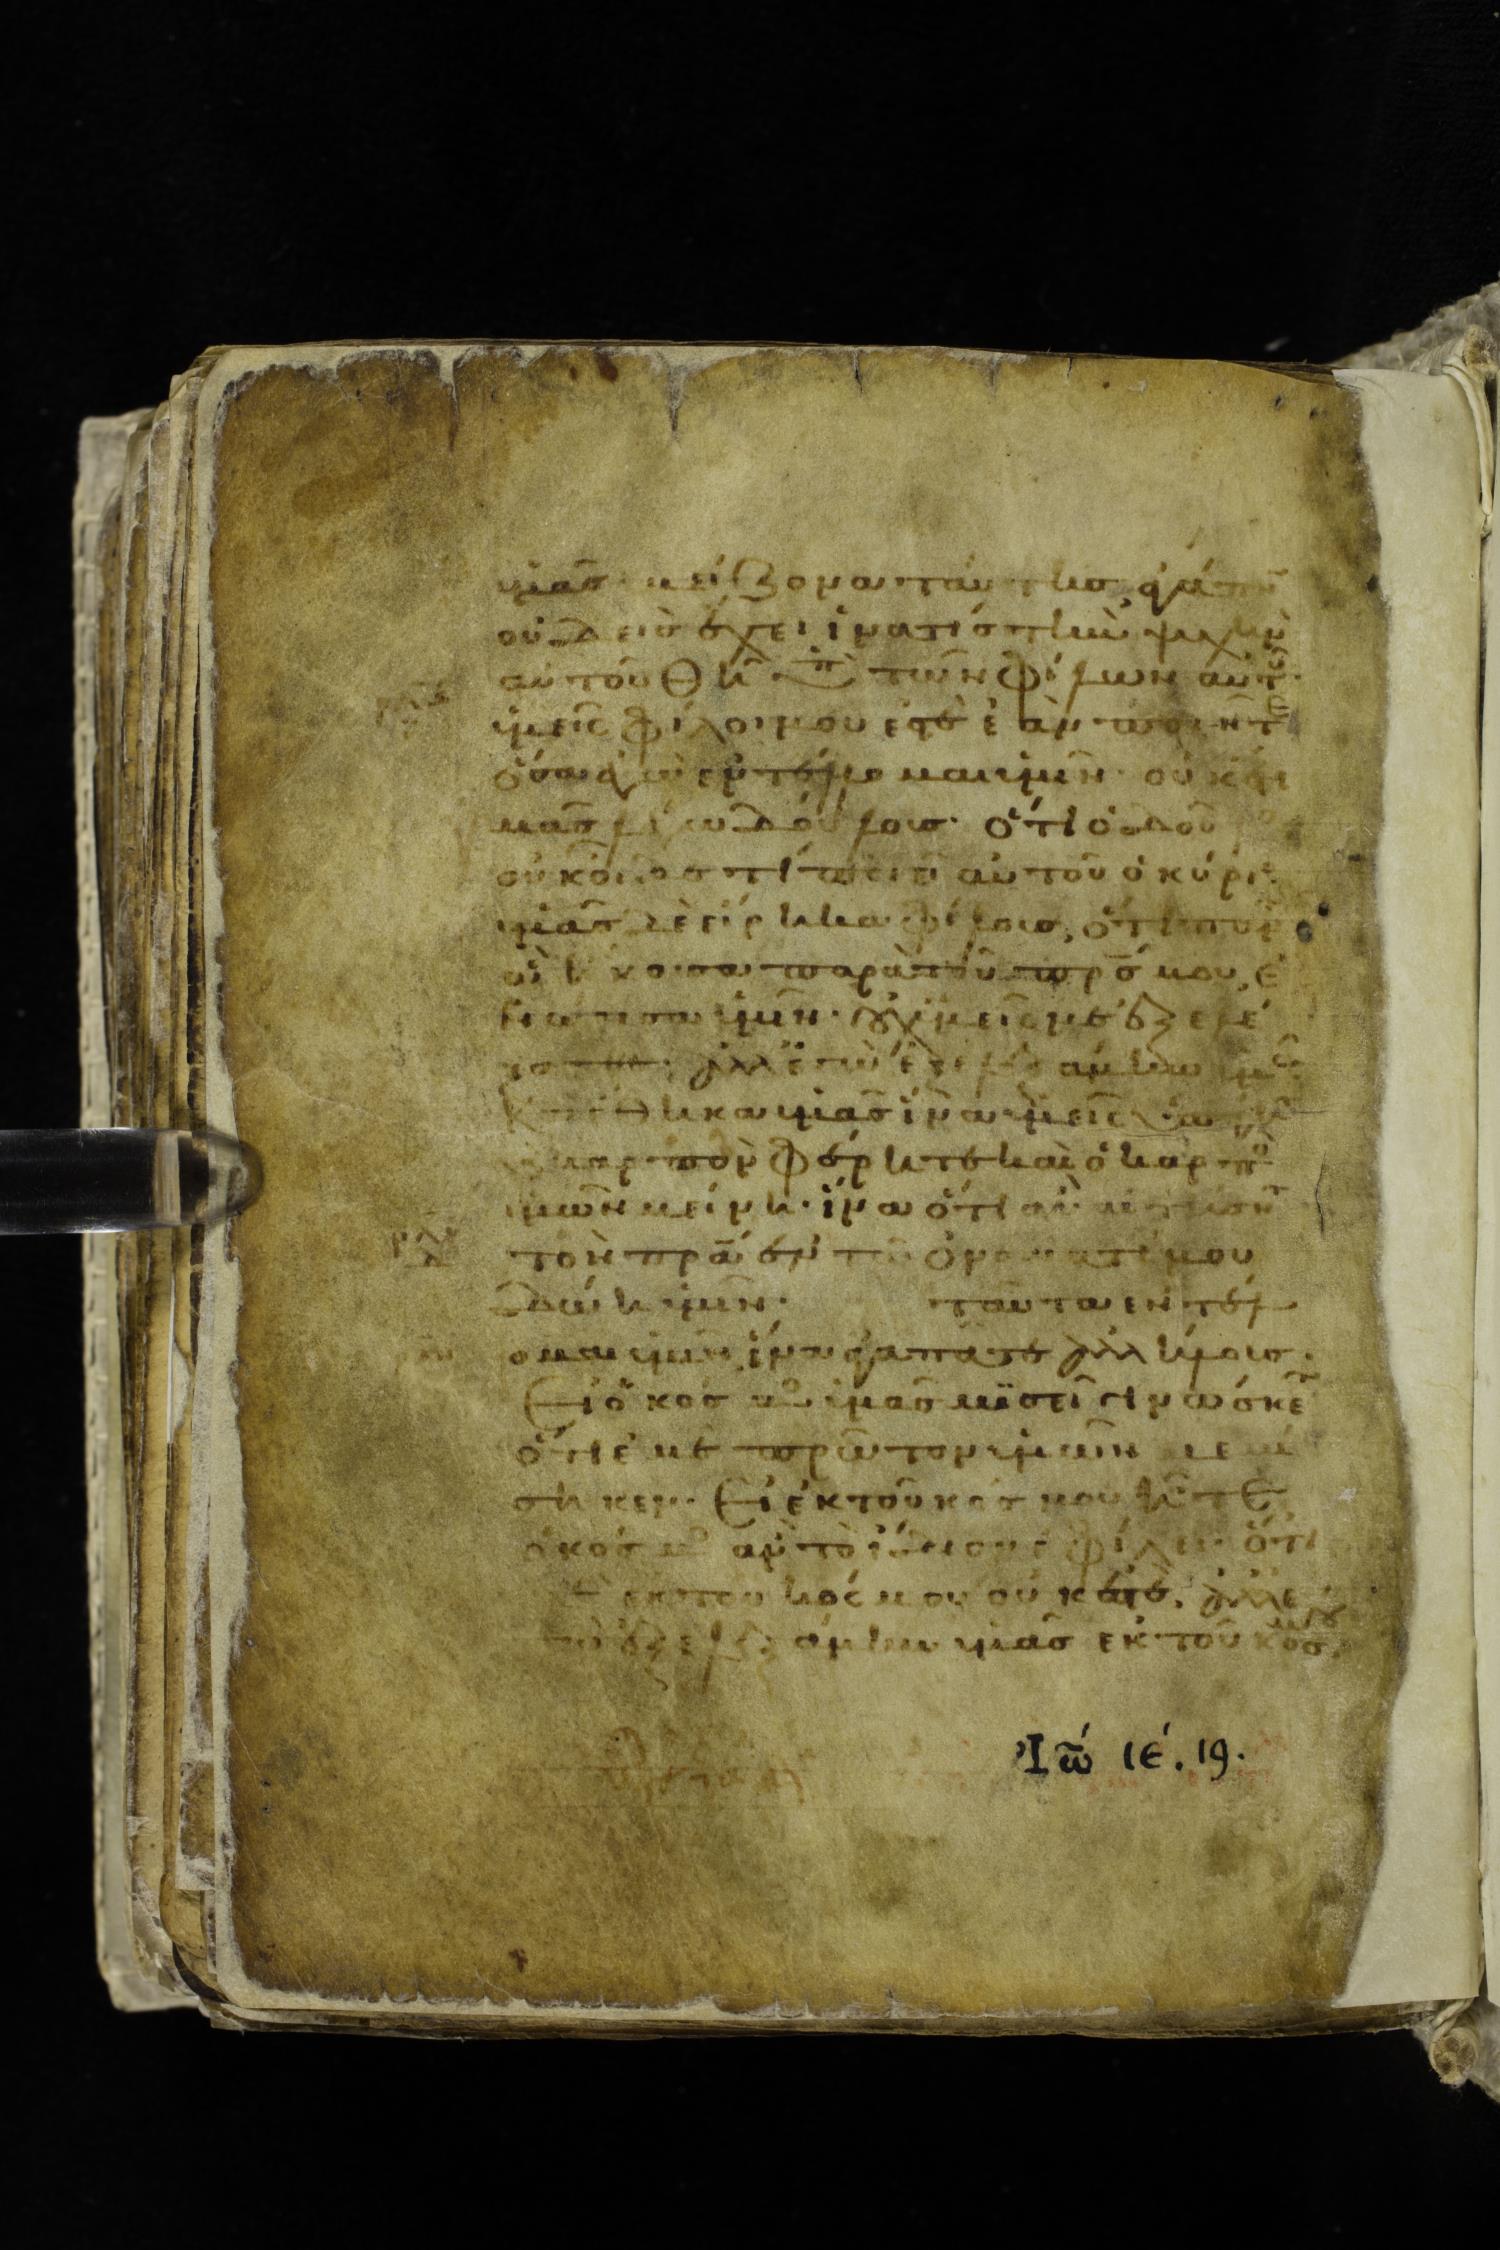 ὑμᾶς· μείζονα ταύτης ἀγάπην
οὐδεὶς ἔχει ἵνα τίς τὴν ψυχὴν
αὐτοῦ θῆ ὑπὲρ τῶν φίλων αὐτοῦ·
ὑμεῖς φίλοι μου ἐστὲ ἐὰν ποιῆτε
ὅσα ἐγὼ ἐντέλλομαι ὑμῖν· οὐκέτι
ὑμᾶς λέγω δούλους· ὅτι ὁ δοῦλος
οὐκ οἶδε τί ποιεῖ αὐτοῦ ὁ κύριος
ὑμᾶς δὲ εἴρηκα φίλους, ὅτι πάντα
ἃ ἤκουσα παρὰ τοῦ πρς μου, ἐ
γνώρισα ὑμῖν· οὐχ ὑμεῖς με ἐξελέ
ξασθε· ἀλλ' ἐγὼ ἐξελεξάμην ὑμᾶς
καὶ ἔθηκα ὑμᾶς ἵνα ὑμεῖς ὑπάγητε
καρπὸν φέρητε καὶ ὁ καρπὸς
ὑμῶν μείνη· ἵνα ὅτι ἂν αἰτήσητε
τὸν πρα ἐν τῶ ὀνόματί μου
δώη ὑμῖν· ταῦτα ἐντέλ
ομαι ὑμῖν ἵνα ἀγαπᾶτε ἀλλήλους·
Εἰ ὁ κόσμος ὑμᾶς μισεῖ γινώσκετε
ὅτι ἐμὲ πρῶτον ὑμῶν μεμί
σηκεν· Εἰ ἐκ τοῦ κόσμου ἦτε
ὁ κόσμος ἂν τὸ ἴδιον ἐφίλει· ὅτι
δὲ ἐκ τοῦ κόσμου οὐκ ἐστέ, ἀλλ' ἐ
γὼ ἐξελεξάμην ὑμᾶς ἐκ τοῦ κόσμου
Ἰω ιέ. 19.